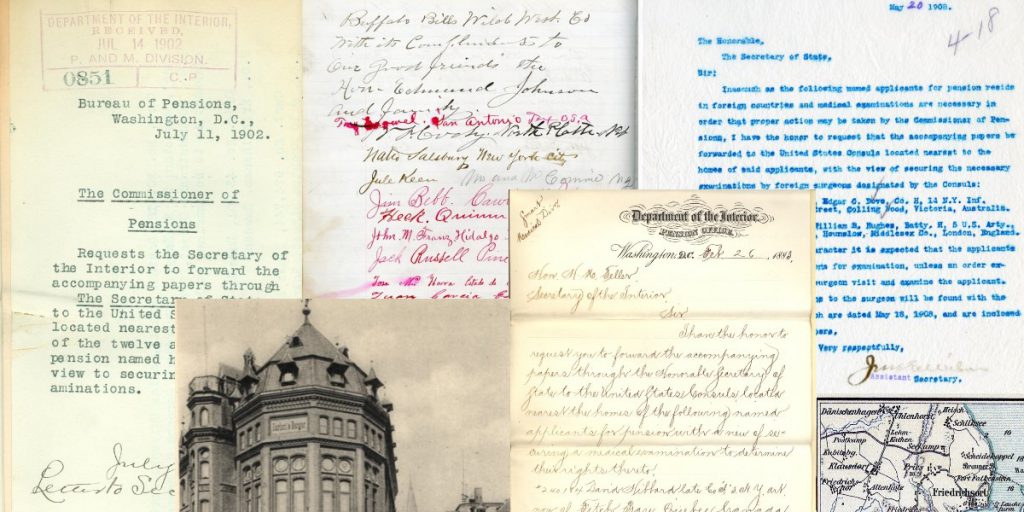 DEPARTMENT OF THE INTERIOR.
RECEIVED,
JUL 14 1902
P. AND M. DIVISION.
0851 C.P
Bureau of Pensions,
Washington, D.C.,
July 11, 1902.
The Commissioner of
Pensions
Requests the Secretary of
the Interior to forward the
accompanying papers through
The Secretary of
to the United
located nearest
of the twelve
pension named
view to securi
aminations.
July
Letter to
Buffalo Bills Wild West Co
With its Compliments to
Our good friends the
Hon. Edmund Johnson
and family.
San Antonio Tex U.S.A
North Platte
Nate Salsbury New York City
Jule Keen
Jim Bebb.
Heck. Quinn
John. M. Franz. Hidalgo
Jack Russell
Juan Garcia
May 20 1908.
4-18
The Honorable,
The Secretary of State,
Sir:
Inasmuch as the following named applicants for pension reside
in foreign countries and medical examinations are necessary in
order that proper action may be taken by the Commissioner of Pen-
sions, I have the honor to request that the accompanying papers be
forwarded to the United States Consuls located nearest to the
homes of said applicants, with the view of securing the necessary
examinations by foreign surgeons designated by the Consuls:
Edgar C. Dove, Co. H, 14 N.Y. Inf.
treet, Colling Food, Victoria, Australia.
William B. Hughes, Batty. H, 5 U.S. Arty.,
Hounslow, Middlesex Co., London, England.
racter it is expected that the applicants
for examination, unless an order ex-
surgeon visit and examine the applicant.
s to the surgeon will be found with the
h are dated May 18, 1908, and are inclosed
pers,
Very respectfully,
Assistant Secretary.
Department of the Interior,
PENSION OFFICE,
Washington, D.C. Feb 26, 1883.
Hon. H. M. Teller
Secretary of the Interior
Sir
I have the honor to
request you to forward the accompanying
papers through the Honorable Secretary of
State to the United States Consuls located
nearest the homes of the following named
applicants for pension with a view of se-
curing a medical examination to determine
their rights thereto.
David Hibbard late Co
now of Fitch Bay, Quebec Canada
Dänischenhagen
Uhlenhorst
Heisch
Schilksee
Lehm-
Kathen
Seekamp
Scheidekoppel
Klausdorf
Pries
Friedrichsort